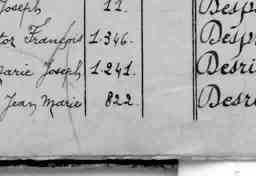 Joseph 11. Desp
tor François 1.346. Desp
Marie Joseph 1.241. Desri
Jean Marie 822. Desro